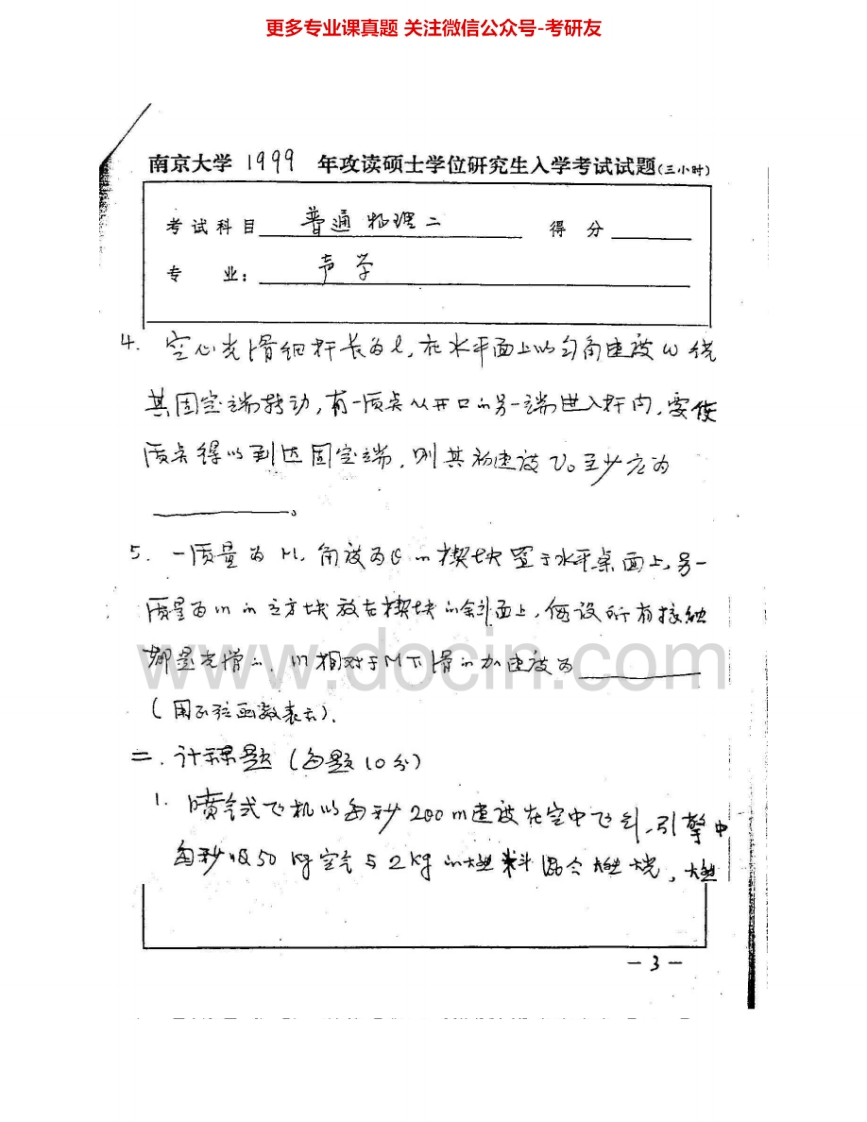 更多专业课真题 关注微信公众号-考研友
南京大学 1999 年攻读硕士学位研究生入学考试试题(三小时)
考试科目 普通物理二 得 分
专 业: 声学
4. 空心光滑细杆长为ℓ,在水平面上以匀角速度ω绕
其固定端转动,有一质点从开口的另一端进入杆内,要使
质点得以到达固定端,则其初速度V₀至少应为
。
5. 一质量为M,角度为θ的楔块置于水平桌面上,另一
质量为m的立方块放在楔块的斜面上,假设所有接触
都是光滑的,m相对于M下滑的加速度为
www.docin.com
(用正弦函数表示).
二. 计算题 (每题10分)
1. 喷气式飞机以每秒200m速度在空中飞行,引擎中
每秒吸50kg空气与2kg的燃料混合燃烧,燃
-3-